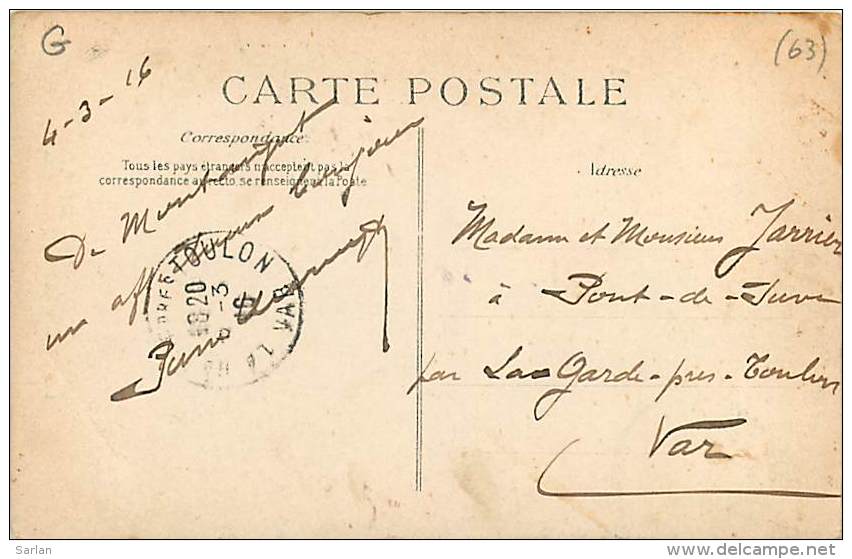 G
(63)
4-3-16
CARTE POSTALE
Correspondance.
Tous les pays étrangers n'acceptent pas la
correspondance au recto, se renseigner à la Poste
De
un affectueux bonjour
TOULON
18 20
-3
VAR
Adresse
Madame et Monsieur Jarrier
à Pont-de-Suve
par La Garde-près-Toulon
Var
Sarlan
www.delcampe.net